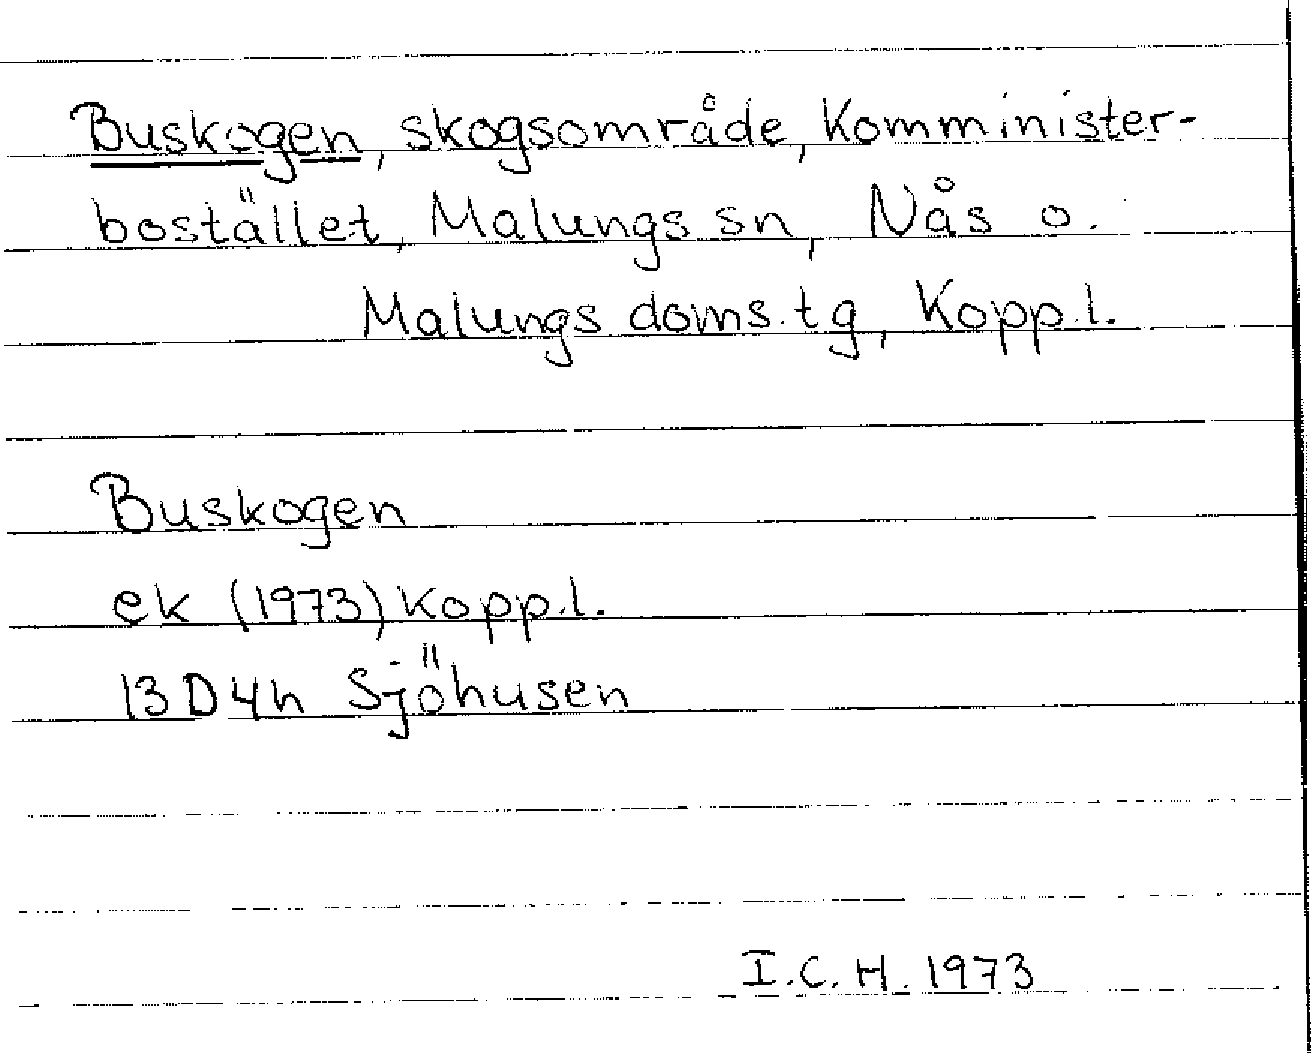 Buskogen, skogsområde, Komminister-
bostället, Malungs sn, Nås o.
Malungs doms.tg, Kopp.l.
Buskogen
ek (1973) Kopp.l.
13D4h Sjöhusen
I.C.H. 1973